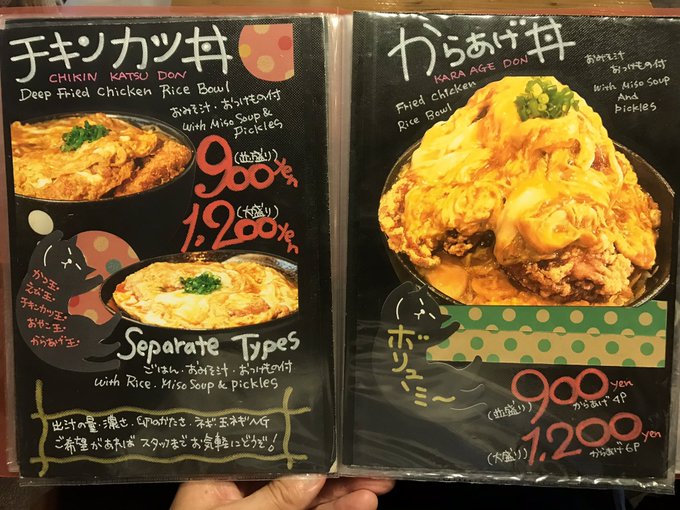 チキンカツ丼
CHIKIN KATSU DON
Deep Fried Chicken Rice Bowl
おみそ汁・おつけもの付
With Miso Soup &
Pickles
(並盛り)
900yen
(大盛り)
1.200yen
かつ玉・
えび玉・
チキンカツ玉・
おやこ玉・
からあげ玉・
Separate Types
ごはん・おみそ汁・おつけもの付
with Rice. Miso Soup & pickles
出汁の量・濃さ、卵のかたさ、ネギ玉ネギNG
ご希望があれば スタッフまで お気軽にどうぞ!
からあげ丼
KARA AGE DON
Fried Chicken
Rice Bowl
おみそ汁
おつけもの付
With Miso Soup
And
Pickles
ボリューミー
900yen
(並盛り) からあげ4P
1.200yen
(大盛り) からあげ6P